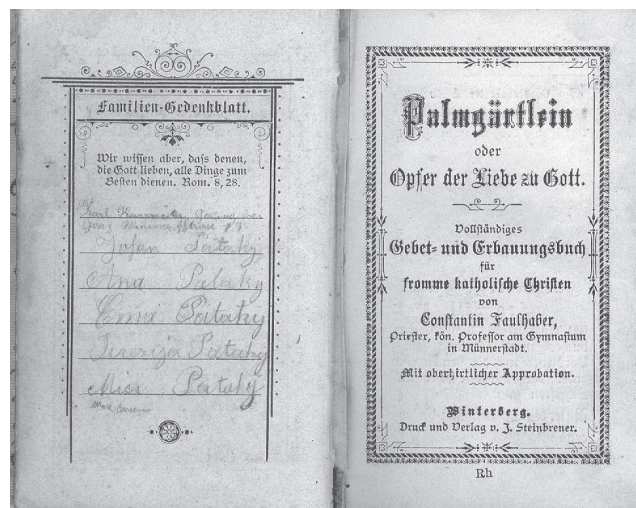 Familien-Gedenkblatt.
Wir wissen aber, dass denen,
die Gott lieben, alle Dinge zum
Besten dienen. Rom. 8, 28.
Josan Pataky
Ana Pataky
Ema Pataky
Terezija Pataky
Mici Pataky
Palmgärtlein
oder
Opfer der Liebe zu Gott.
Vollständiges
Gebet- und Erbauungsbuch
für
fromme katholische Christen
von
Constantin Faulhaber,
Priester, kön. Professor am Gymnasium
in Münnerstadt.
Mit oberhirtlicher Approbation.
Winterberg.
Druck und Verlag v. J. Steinbrener.
Rh